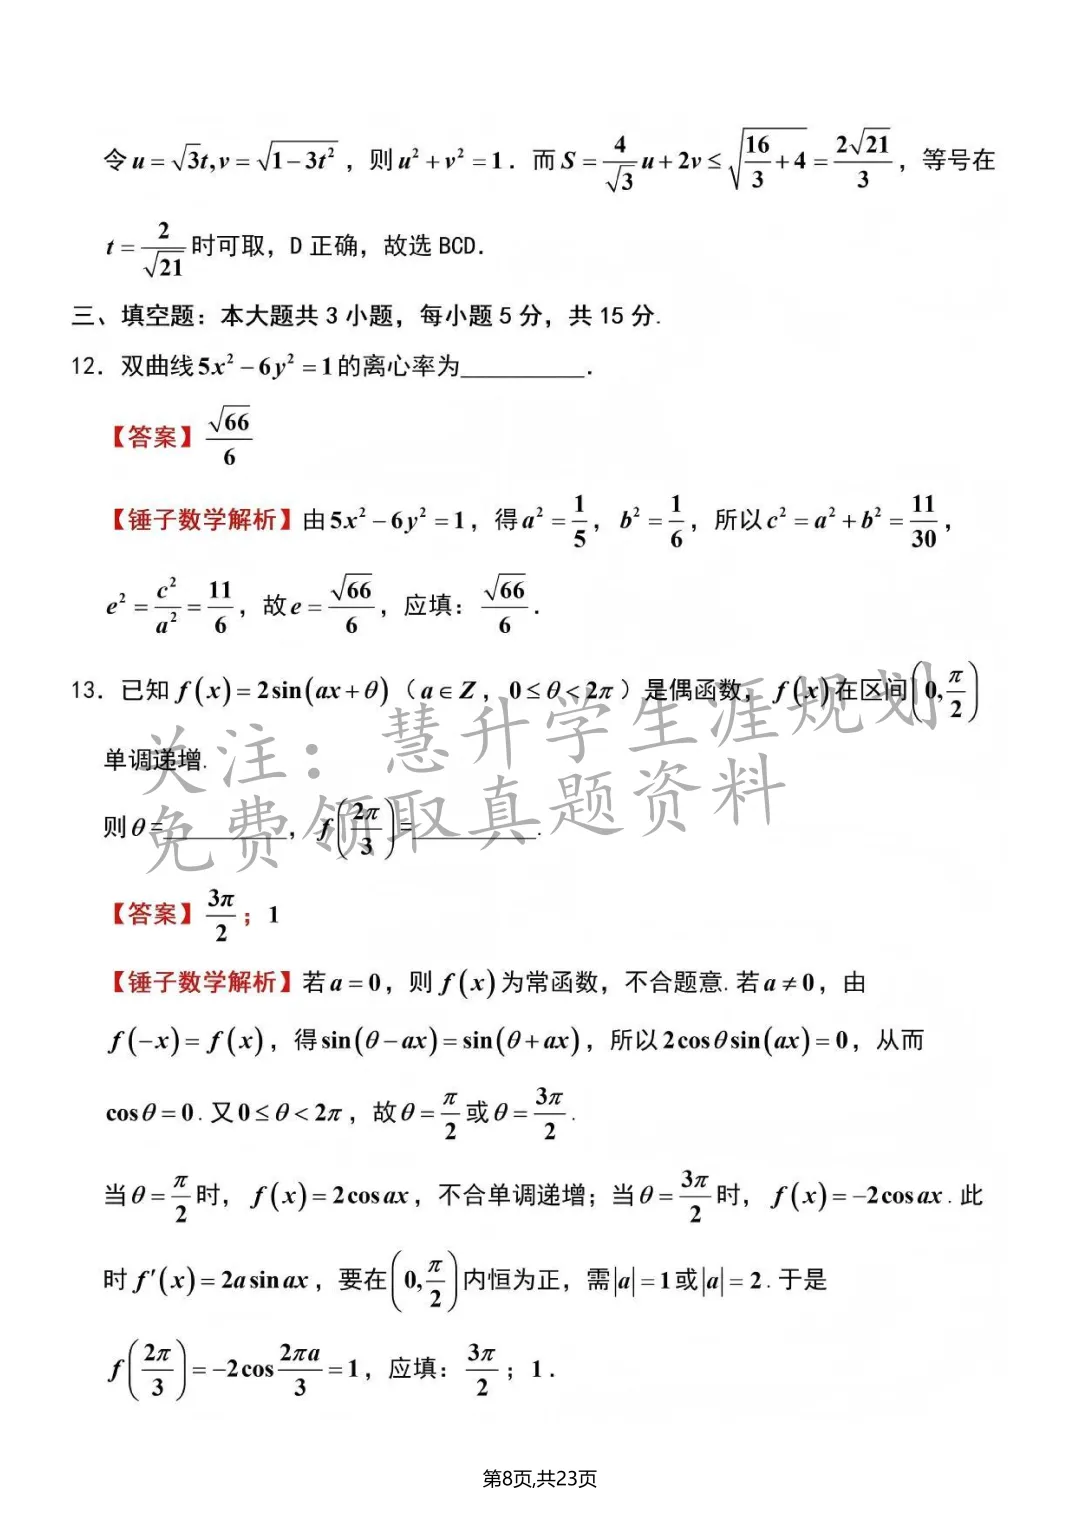 令 u = √3t, v = √(1−3t²)，则 u² + v² = 1. 而 S = 4/√3 u + 2v ≤ √(16/3 + 4) = 2√21/3，等号在
t = 2/√21 时可取，D 正确，故选 BCD.
三、填空题：本大题共 3 小题，每小题 5 分，共 15 分.
12. 双曲线 5x² − 6y² = 1 的离心率为__________.
【答案】√66/6
【锤子数学解析】由 5x² − 6y² = 1，得 a² = 1/5，b² = 1/6，所以 c² = a² + b² = 11/30，
e² = c²/a² = 11/6，故 e = √66/6，应填：√66/6.
13. 已知 f(x) = 2sin(ax + θ)（a ∈ Z，0 ≤ θ < 2π）是偶函数，f(x)在区间(0, π/2)
单调递增.
则 θ =__________，f(2π/3) =__________.
关注：慧升学生涯规划
免费领取真题资料
【答案】3π/2；1
【锤子数学解析】若 a = 0，则 f(x) 为常函数，不合题意. 若 a ≠ 0，由
f(−x) = f(x)，得 sin(θ − ax) = sin(θ + ax)，所以 2cosθsin(ax) = 0，从而
cosθ = 0. 又 0 ≤ θ < 2π，故 θ = π/2 或 θ = 3π/2.
当 θ = π/2 时，f(x) = 2cosax，不合单调递增；当 θ = 3π/2 时，f(x) = −2cosax. 此
时 f′(x) = 2a sinax，要在(0, π/2)内恒为正，需|a| = 1 或|a| = 2. 于是
f(2π/3) = −2cos 2πa/3 = 1，应填：3π/2；1.
第8页,共23页